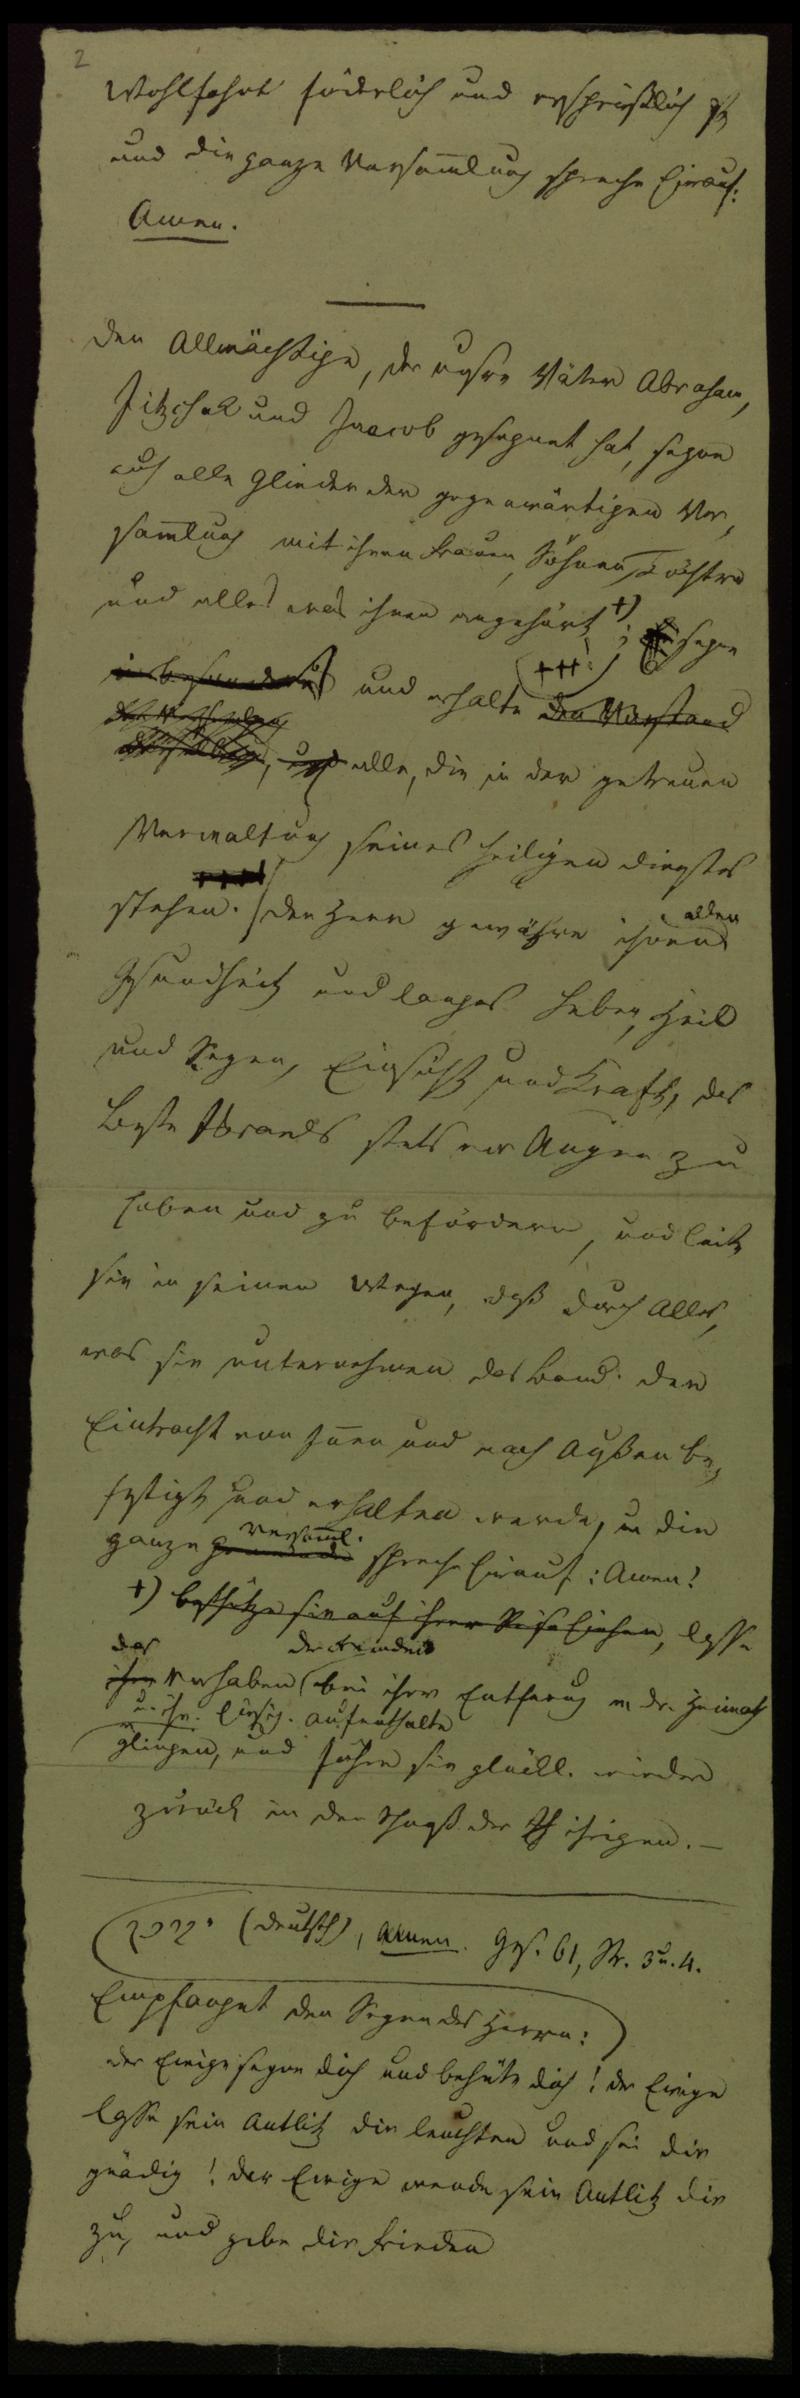 2
Wohlfahrt förderlich und ersprießlich sey
und die ganze Versam̄lung spreche hierauf:
Amen.
Der Allmächtige, der unsere Väter Abraham,
Jitzchak und Jaacob gesegnet hat, segne
auch alle Glieder der gegenwärtigen Ver,
sam̄lung mit ihren Frauen, Söhnen, Töchtern
und alles was ihnen angehört +) ; Er segne
insbesondere und erhalte (+++) den Vorstand
und alle, die in der getreuen
Verwaltung seines heiligen Dienstes
stehen. Der Herr gewähre ihnen allen
Gesundheit und langes Leben, Heil
und Segen, Einsicht und Kraft, das
Beste Israels stets vor Augen zu
haben und zu befördern, und leite
sie in seinen Wegen, daß durch Alles,
was sie unternehmen das Band der
Eintracht von Jn̄en und nach Außen be,
festigt und erhalten werde, u die
ganze Gemeinde Versam̄l. spreche hierauf: Amen!
+) beschütze sie auf ihrer Reise hieher, lasse
ihr das Vorhaben der Fremden bei ihrer Entfernug v. dr. Heimath
u. ihr. hiesig. Aufenthalte
glingen, und führe sie glückl. wieder
zurück in den Schooß der ihrigen. —
(Deutsch), Amen. Ges. 61, Str. 3 u. 4.
Empfanget den Segen des Herrn:
Der Ewige segne dich und behüte dich! der Ewige
lasse sein Antlitz dir leuchten und sei dir
gnädig! Der Ewige wende sein Antlitz dir
zu, und gebe dir Frieden